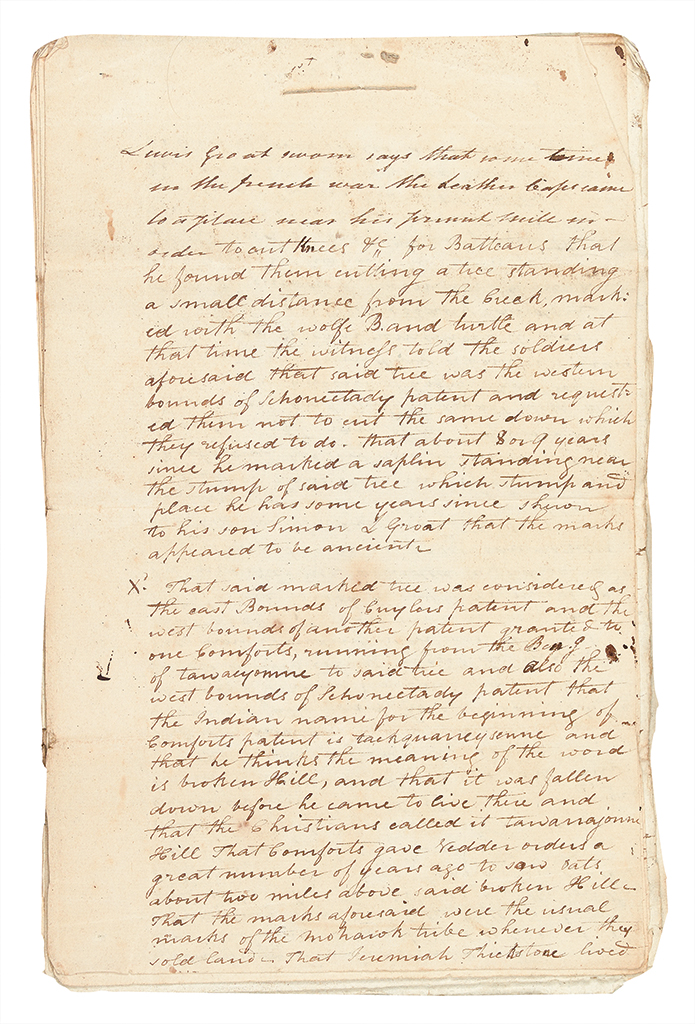 1st
Lewis Groat sworn says that some time
in the french war the Leather Caps came
to a place near his present mill in
order to cut Knees &c for Batteaus that
he found them cutting a tree standing
a small distance from the Creek, mark:
ed with the wolfe B. and turtle and at
that time the witness told the soldiers
aforesaid that said tree was the western
bounds of Schonectady patent and request:
ed them not to cut the same down which
they refused to do. that about 8 or 9 years
since he marked a saplin standing near
the stump of said tree which stump and
place he has some years since shewn
to his son Simon L Groat that the marks
appeared to be ancient
X. That said marked tree was considered as
the east Bounds of Cuylers patent and the
west bounds of another patent granted to
one Comforts, running from the Beg.g
of tawaeyonne to said tree and also the
west bounds of Schonectady patent that
the Indian name for the beginning of
Comforts patent is tackquarreysenne and
that he thinks the meaning of the word
is broken Hill, and that it was fallen
down before he came to live there and
that the Christians called it tawarrajonni
Hill That Comforts gave Vedder orders a
great number of years ago to sow oats
about two miles above said broken Hill
That the marks aforesaid were the usual
marks of the mohawk tribe whenever they
sold land. That Jeremiah Thickstone lived